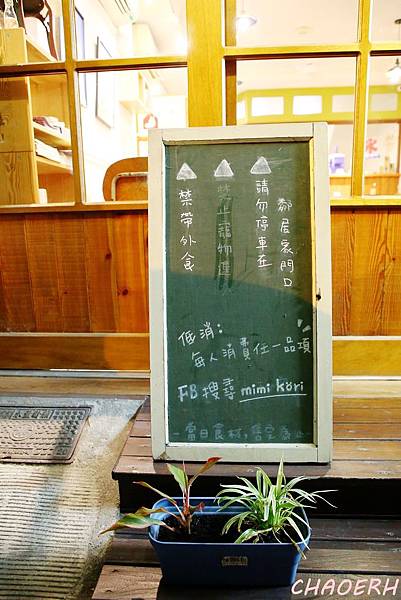 鄰居家門口
請勿停車在
禁止寵物進
禁帶外食
低消:
每人消費任一品項
FB搜尋 mimi köri
CHAOERH